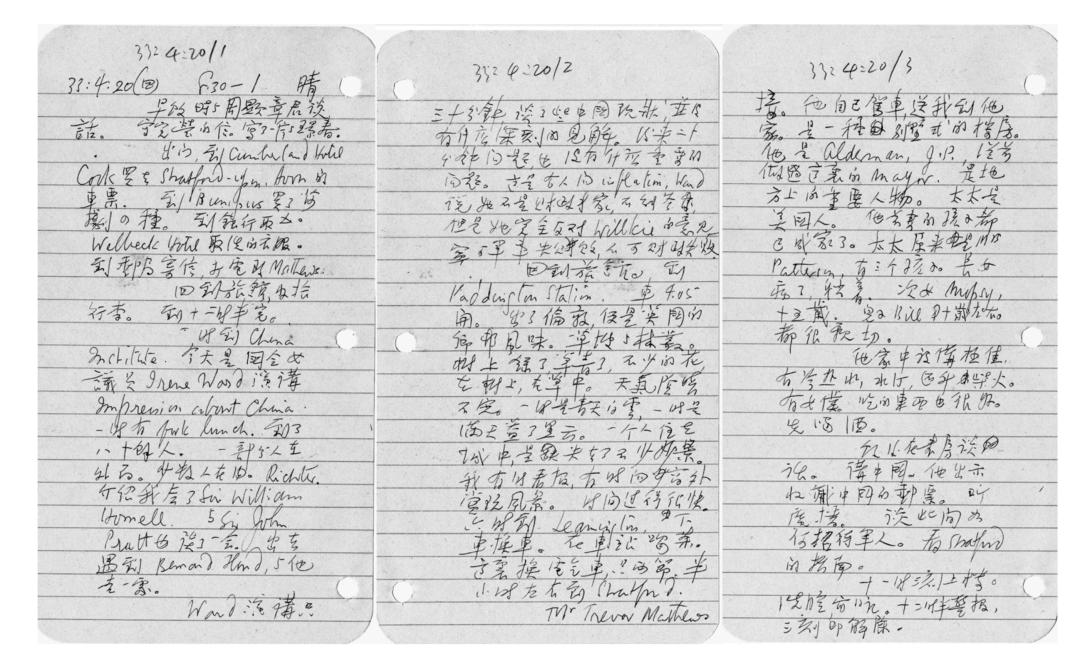 33:4:20/1
33:4:20(四) F30-1 晴
早飯時與周顯章君談
話。 
出門,到Cumberland Hotel
Cook買去Stratford-upon-Avon的
車票。到Bumpus買了
劇四種。到銀行取款。
Welbeck Hotel取洗的衣服。
到郵局寄信,打電與Mathews.
回到旅館,收拾
行李。到十二時半完。
一時到China
Institute. 今天是國會女
議員Irene Ward演講
Impression about China.
一時有fork lunch. 到了
八十餘人。一部分人在
外面。少數人在內。Richter
介紹我會了Sir William
Hornell. 與Sir John
Pratt也談了一會。出去
遇到Bernard Floud,與他
走一零。
Ward演講只
33:4:20/2
三十分鐘,談了些中國現狀,並沒
有什麼深刻的見解。後來二十
分鐘問題也沒有什麼重要的
問題。有人問inflation, Ward
說她不是財政專家,不能答覆。
但是她完全反對Willkie的意見
回到旅館。到
Paddington Station. 車4.05
開。出了倫敦,便是英國的
鄉郊風味。草地與樹叢。
樹上綠了,草青了,不少的花
在樹上,在草中。天氣陰晴
不定。一時是青天白雲,一時是
滿天蓋了黑云。一个人住在
城中,是缺失去了不少好景。
我有時看報,有時向窗外
賞玩風景。時间過得很快。
六時到Leamington, 下
車換車。在車站喝茶。
這裏換電氣車,只兩節,半
小時左右到Stratford.
Mr Trevor Mathews
33:4:20/3
接。他自己駕車送我到他
家。是一種別墅式的樓房。
他是Alderman, J.P., 從前
做過這裏的Mayor. 是地
方上的重要人物。太太是
美國人。他前妻的孩子都
已成家了。太太原來
Patterson, 有三個孩子。長女
病了,躺着。次女Mopsy,
十五歲。兒子Bill 十歲左右。
都很親切。
他家中設備極佳,
有冷热水,水汀,面升柴火。
有女僕。吃的東西也很好。
先喝酒。
飯後在書房談
話。講中國。他出示
收藏中國的郵票。
談此间如
何招待軍人。看Stratford
的指南。
十一時三刻上樓。
洗脸前睡。十二時半警報,
三刻即解除。